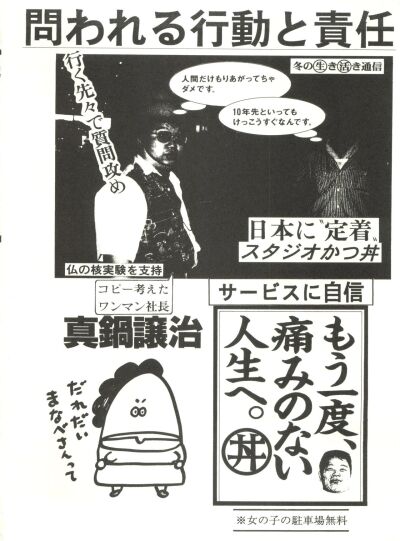 問われる行動と責任
冬の生き活き通信
行く先々で質問攻め
人間だけもりあがってちゃ
ダメです。
10年先といっても
けっこうすぐなんです。
日本に〝定着〟
スタジオかつ丼
仏の核実験を支持
コピー考えた
ワンマン社長
真鍋譲治
サービスに自信
もう一度、
痛みのない
人生へ。丼
だれだい
まなべさんって
※女の子の駐車場無料